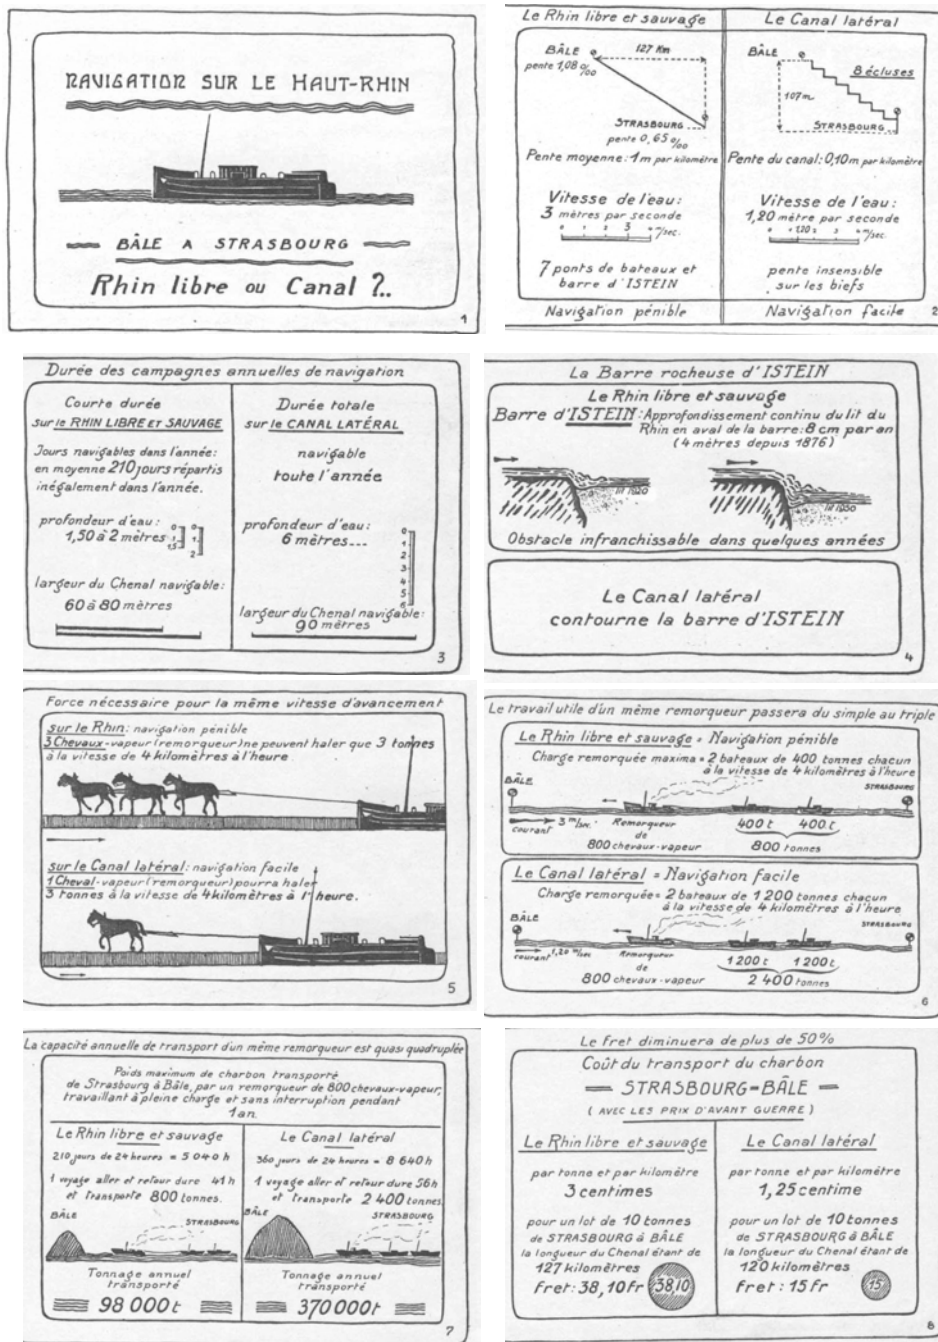 NAVIGATION SUR LE HAUT-RHIN
BÂLE A STRASBOURG
Rhin libre ou Canal ?..
1
Le Rhin libre et sauvage
BÂLE
127 Km
pente 1,08 ‰
STRASBOURG
pente 0,65 ‰
Pente moyenne : 1 m par kilomètre
Vitesse de l'eau :
3 mètres par seconde
0 1 2 3 4 m/sec.
7 ponts de bateaux et
barre d'ISTEIN
Navigation pénible
Le Canal latéral
BÂLE
8 écluses
107 m
STRASBOURG
Pente du canal : 0,10 m par kilomètre
Vitesse de l'eau :
1,20 mètre par seconde
0 1 1,20 2 3 4 m/sec.
pente insensible
sur les biefs
Navigation facile
2
Durée des campagnes annuelles de navigation
Courte durée
sur le RHIN LIBRE ET SAUVAGE
Jours navigables dans l'année :
en moyenne 210 jours répartis
inégalement dans l'année.
profondeur d'eau :
1,50 à 2 mètres
0 1 1,5
0 1 2
largeur du Chenal navigable :
60 à 80 mètres
Durée totale
sur le CANAL LATÉRAL
navigable
toute l'année
profondeur d'eau :
6 mètres...
0
1
2
3
4
5
6
largeur du Chenal navigable :
90 mètres
3
La Barre rocheuse d'ISTEIN
Le Rhin libre et sauvage
Barre d'ISTEIN : Approfondissement continu du lit du
Rhin en aval de la barre : 8 cm par an
(4 mètres depuis 1876)
lit 1920
lit 1930
Obstacle infranchissable dans quelques années
Le Canal latéral
contourne la barre d'ISTEIN
4
Force nécessaire pour la même vitesse d'avancement
sur le Rhin : navigation pénible
3 Chevaux-vapeur (remorqueur) ne peuvent haler que 3 tonnes
à la vitesse de 4 kilomètres à l'heure
sur le Canal latéral : navigation facile
1 Cheval-vapeur (remorqueur) pourra haler
3 tonnes à la vitesse de 4 kilomètres à l'heure.
5
Le travail utile d'un même remorqueur passera du simple au triple
Le Rhin libre et sauvage = Navigation pénible
Charge remorquée maxima = 2 bateaux de 400 tonnes chacun
à la vitesse de 4 kilomètres à l'heure
BÂLE
STRASBOURG
courant 3 m/sec.
Remorqueur
de
800 chevaux-vapeur
400 t 400 t
800 tonnes
Le Canal latéral = Navigation facile
Charge remorquée = 2 bateaux de 1200 tonnes chacun
à la vitesse de 4 kilomètres à l'heure
BÂLE
STRASBOURG
courant 1,20 m/sec
Remorqueur
de
800 chevaux-vapeur
1200 t 1200 t
2 400 tonnes
6
La capacité annuelle de transport d'un même remorqueur est quasi quadruplée
Poids maximum de charbon transporté
de Strasbourg à Bâle, par un remorqueur de 800 chevaux-vapeur,
travaillant à pleine charge et sans interruption pendant
1 an.
Le Rhin libre et sauvage
210 jours de 24 heures = 5 040 h
1 voyage aller et retour dure 41 h
et transporte 800 tonnes.
BÂLE
STRASBOURG
Tonnage annuel
transporté
98 000 t
Le Canal latéral
360 jours de 24 heures = 8 640 h
1 voyage aller et retour dure 56 h
et transporte 2 400 tonnes.
BÂLE
STRASBOURG
Tonnage annuel
transporté
370 000 t
7
Le fret diminuera de plus de 50%
Coût du transport du charbon
STRASBOURG-BÂLE
(AVEC LES PRIX D'AVANT GUERRE)
Le Rhin libre et sauvage
par tonne et par kilomètre
3 centimes
pour un lot de 10 tonnes
de STRASBOURG à BÂLE
la longueur du Chenal étant de
127 kilomètres
fret : 38,10 fr
38,10
Le Canal latéral
par tonne et par kilomètre
1,25 centime
pour un lot de 10 tonnes
de STRASBOURG à BÂLE
la longueur du Chenal étant de
120 kilomètres
Fret : 15 fr
15
8